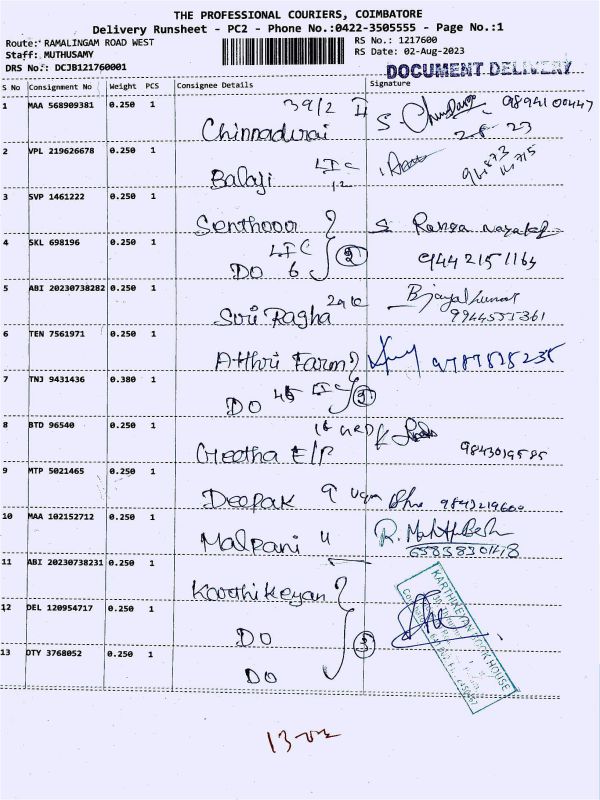 THE PROFESSIONAL COURIERS, COIMBATORE
Delivery Runsheet - PC2 - Phone No.:0422-3505555 - Page No.:1
Route: RAMALINGAM ROAD WEST
RS No.: 1217600
Staff: MUTHUSAMY
RS Date: 02-Aug-2023
DRS No.: DCJB121760001
DOCUMENT DELIVERY
S No Consignment No Weight PCS Consignee Details Signature
1 MAA 568909381 0.250 1 Chinnadurai 39/2 II S 9894100447
2-8-23
2 VPL 219626678 0.250 1 Balaji LIC 12
3 SVP 1461222 0.250 1 Senthoor S Ranga
4 SKL 698196 0.250 1 DO LIC 6 2 9442151164
5 ABI 20230738282 0.250 1 Sri Ragha 9944555361
6 TEN 7561971 0.250 1 Athri Farm
7 TNJ 9431436 0.380 1 DO 45 LIC
8 BTD 96540 0.250 1 Geetha E/P 16 9843019585
9 MTP 5021465 0.250 1 Deepak 9 9843219600
10 MAA 102152712 0.250 1 Malpani 11 R.
11 ABI 20230738231 0.250 1 Karthikeyan
12 DEL 120954717 0.250 1 DO
13 DTY 3768052 0.250 1 DO 3
KARTHIKEYAN BOOK HOUSE